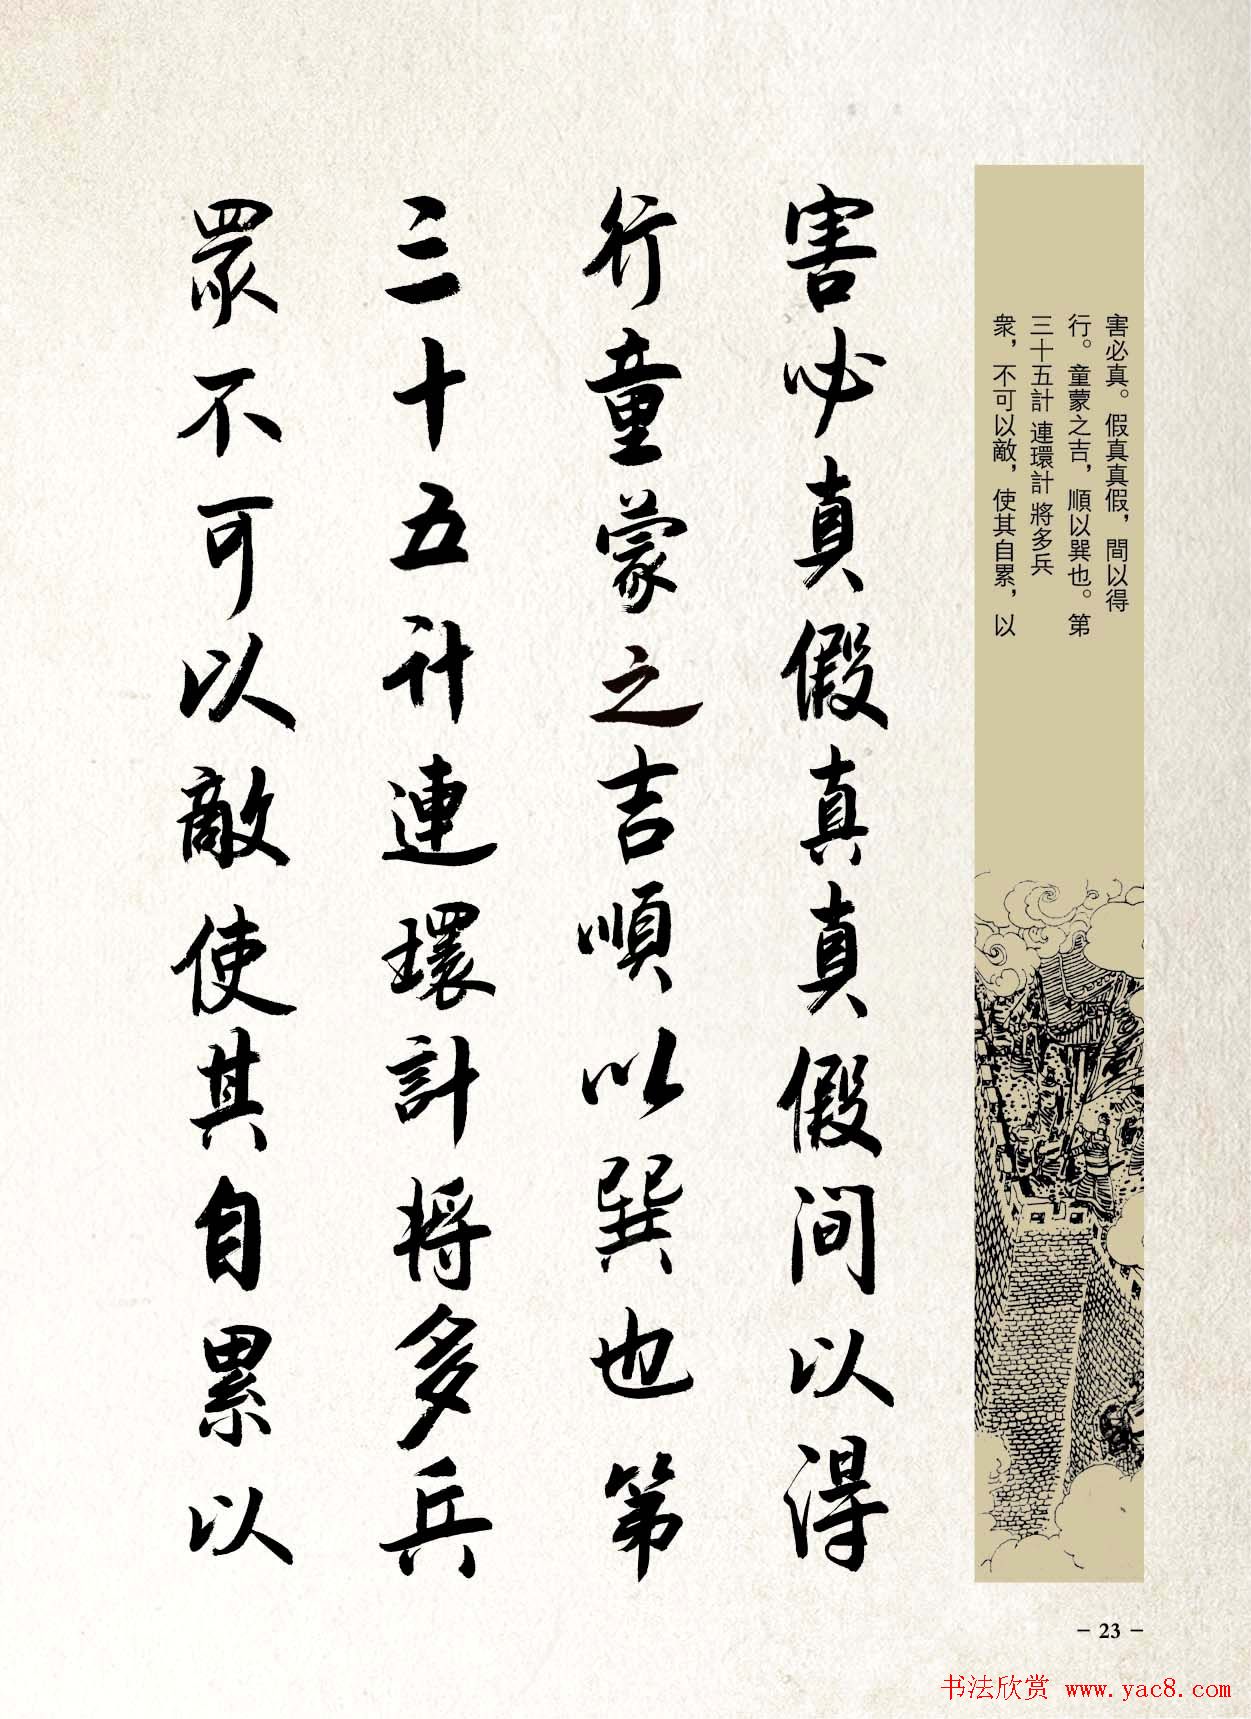 害必真。假真真假，間以得
行。童蒙之吉，順以巽也。第
三十五計 連環計 將多兵
衆，不可以敵，使其自累，以
害必真假真真假间以得
行童蒙之吉順以巽也第
三十五计連環計将多兵
眾不可以敵使其自累以
- 23 -
书法欣赏 www.yac8.com